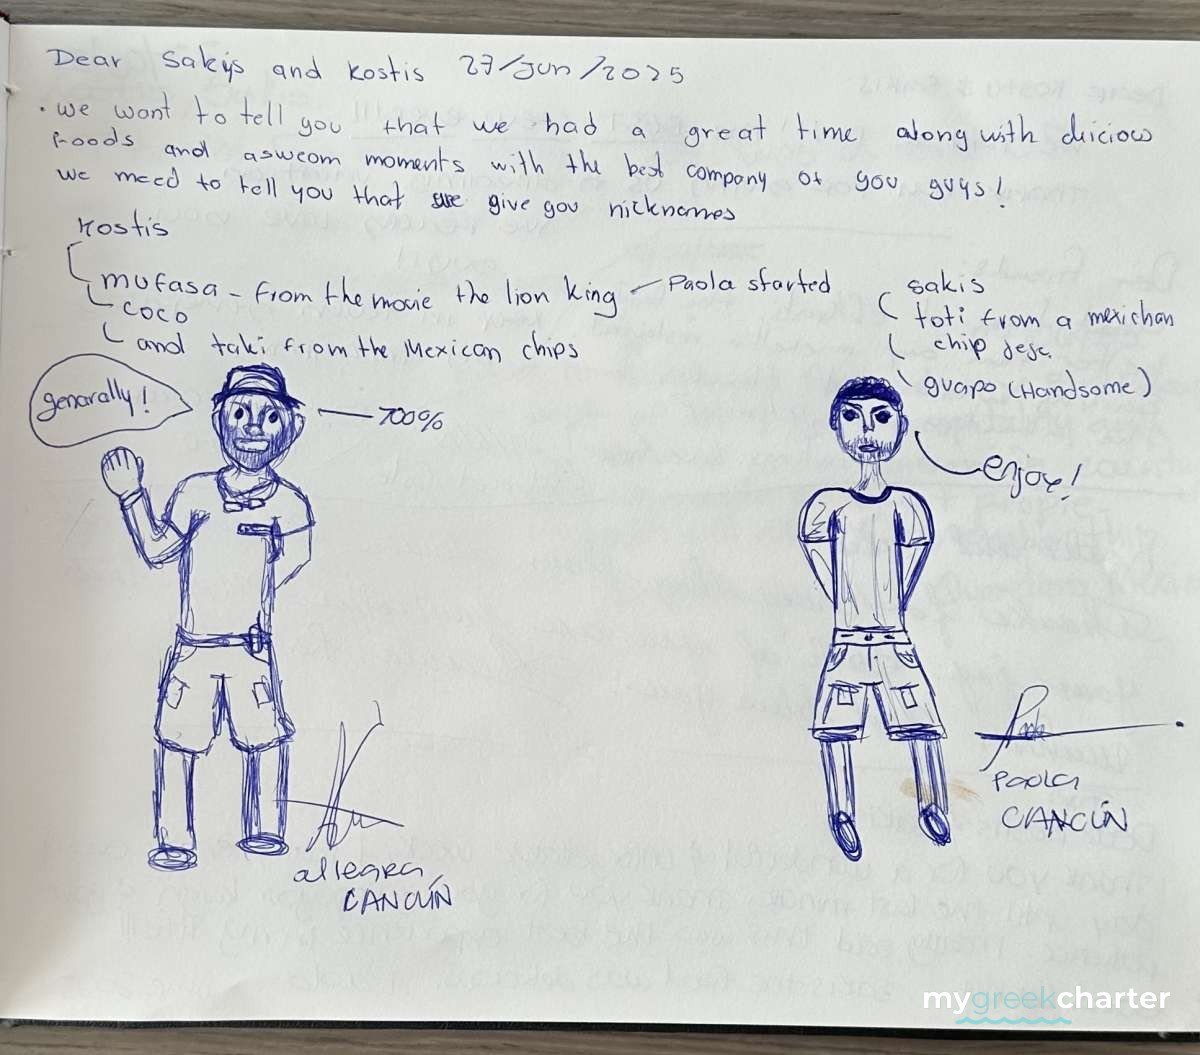 Dear Sakis and Kostis 27/Jun/2025
• we want to tell you that we had a great time along with diciow
foods and asweom moments with the best company of you guys!
we need to tell you that we give you nicknames
Kostis
mufasa - from the movie the lion king - Paola started
coco
and taki from the Mexican chips
sakis
toti from a mexichan
chip
guapo (Handsome)
genarally!
700%
enjoy!
allegra,
CANCÚN
Paola
CANCÚN
mygreekcharter